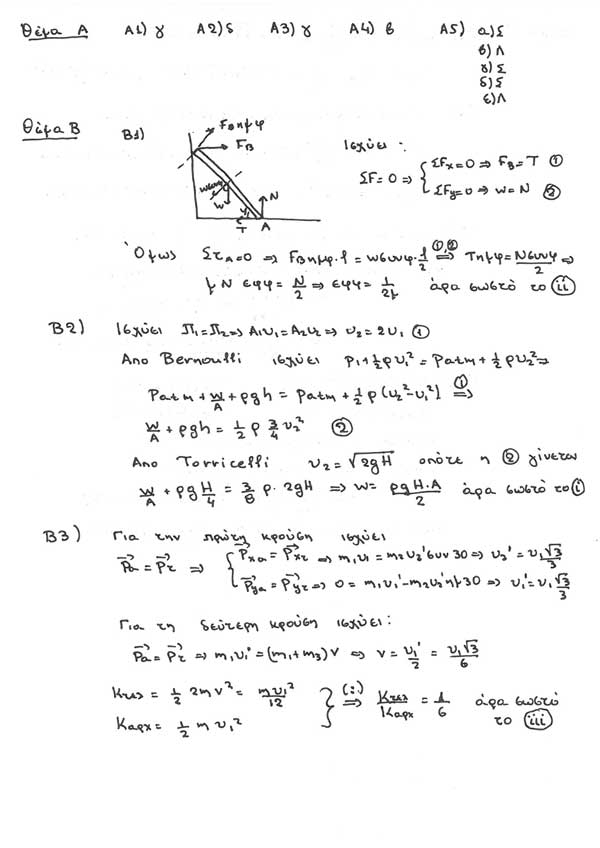 Θέμα Α Α1) γ Α2) δ Α3) γ Α4) β Α5) α) Σ
β) Λ
γ) Σ
δ) Σ
ε) Λ
Θέμα Β Β1) F_Bημφ F_B wσυνφ w N φ T A
Ισχύει :
ΣF=0 ⇒ { ΣFx=0 ⇒ F_B=T ①
ΣFy=0 ⇒ w=N ②
Όμως Στ_A=0 ⇒ F_Bημφ·l = wσυνφ·l/2 ⇒(①,②) Tημφ=Νσυνφ/2 ⇒
μN εφφ = N/2 ⇒ εφφ = 1/2μ άρα σωστό το (ii)
Β2) Ισχύει Π1=Π2 ⇒ A1υ1=A2υ2 ⇒ υ2=2υ1 ①
Από Bernoulli ισχύει P1+½ρυ1² = Patm+½ρυ2² ⇒
Patm + w/A + ρgh = Patm + ½ρ(υ2²-υ1²) ⇒(①)
w/A + ρgh = ½ρ ¾υ2² ②
Από Torricelli υ2=√2gH οπότε η ② γίνεται
w/A + ρg H/4 = 3/8 ρ·2gH ⇒ w= ρgH·A/2 άρα σωστό το (i)
Β3) Για την πρώτη κρούση ισχύει
P⃗α = P⃗τ ⇒ { P⃗xα = P⃗xτ ⇒ m1υ1=m2υ2'συν30 ⇒ υ2'=υ1√3/3
P⃗yα=P⃗yτ ⇒ 0=m1υ1'-m2υ2'ημ30 ⇒ υ1'=υ1√3/3
Για τη δεύτερη κρούση ισχύει:
P⃗α=P⃗τ ⇒ m1υ1'=(m1+m3)V ⇒ V=υ1'/2 = υ1√3/6
Kτελ = ½ 2mV² = mυ1²/12 } ⇒(:) Kτελ/Kαρχ = 1/6 άρα σωστό
Kαρχ = ½ mυ1² το (iii)